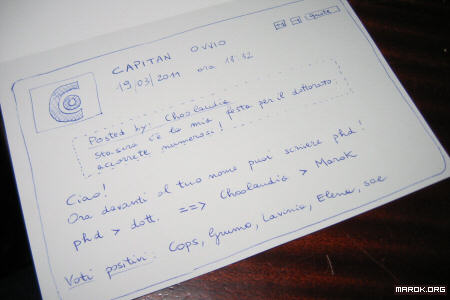 CAPITAN OVVIO
19/03/2011 ora 18:32
Quote
Posted by: Choolandia
Stasera c'è la mia festa per il dottorato.
accorrete numerosi!
Ciao!
Ora davanti al tuo nome puoi scrivere phd!
phd > dott. ==> Choolandia > Marok
Voti positivi: Cops, Grumo, Lavinia, Elena, sae
MAROK.ORG